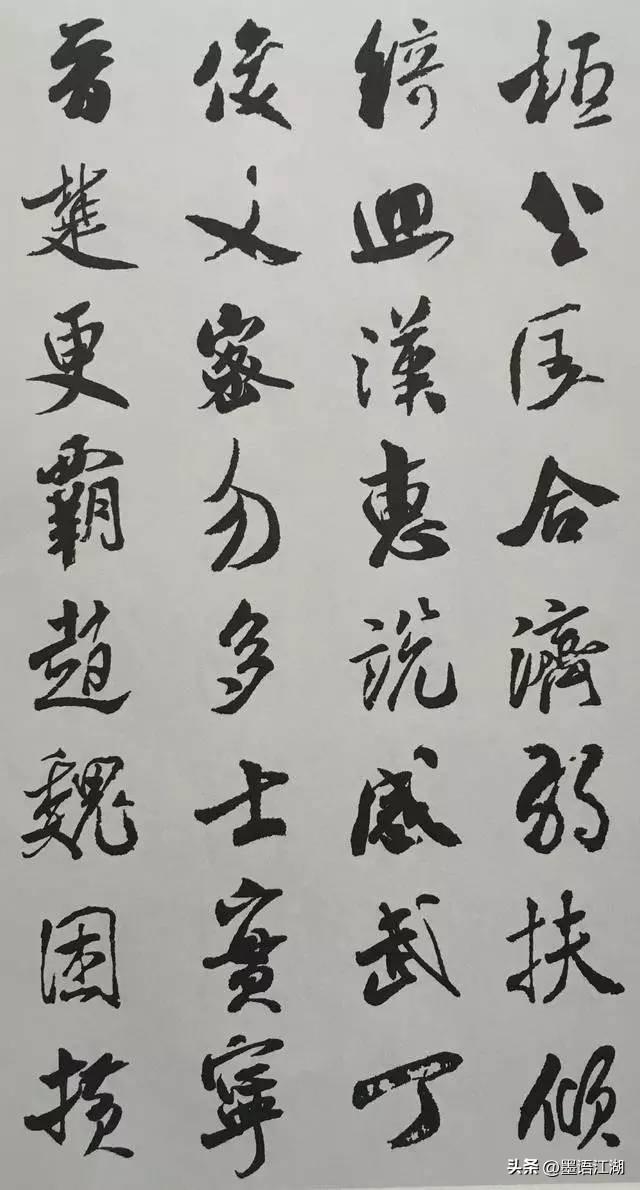 桓公匡合濟弱扶傾
綺迴漢惠說感武丁
俊乂密勿多士寔寧
晉楚更霸趙魏困横
头条 @墨语江湖